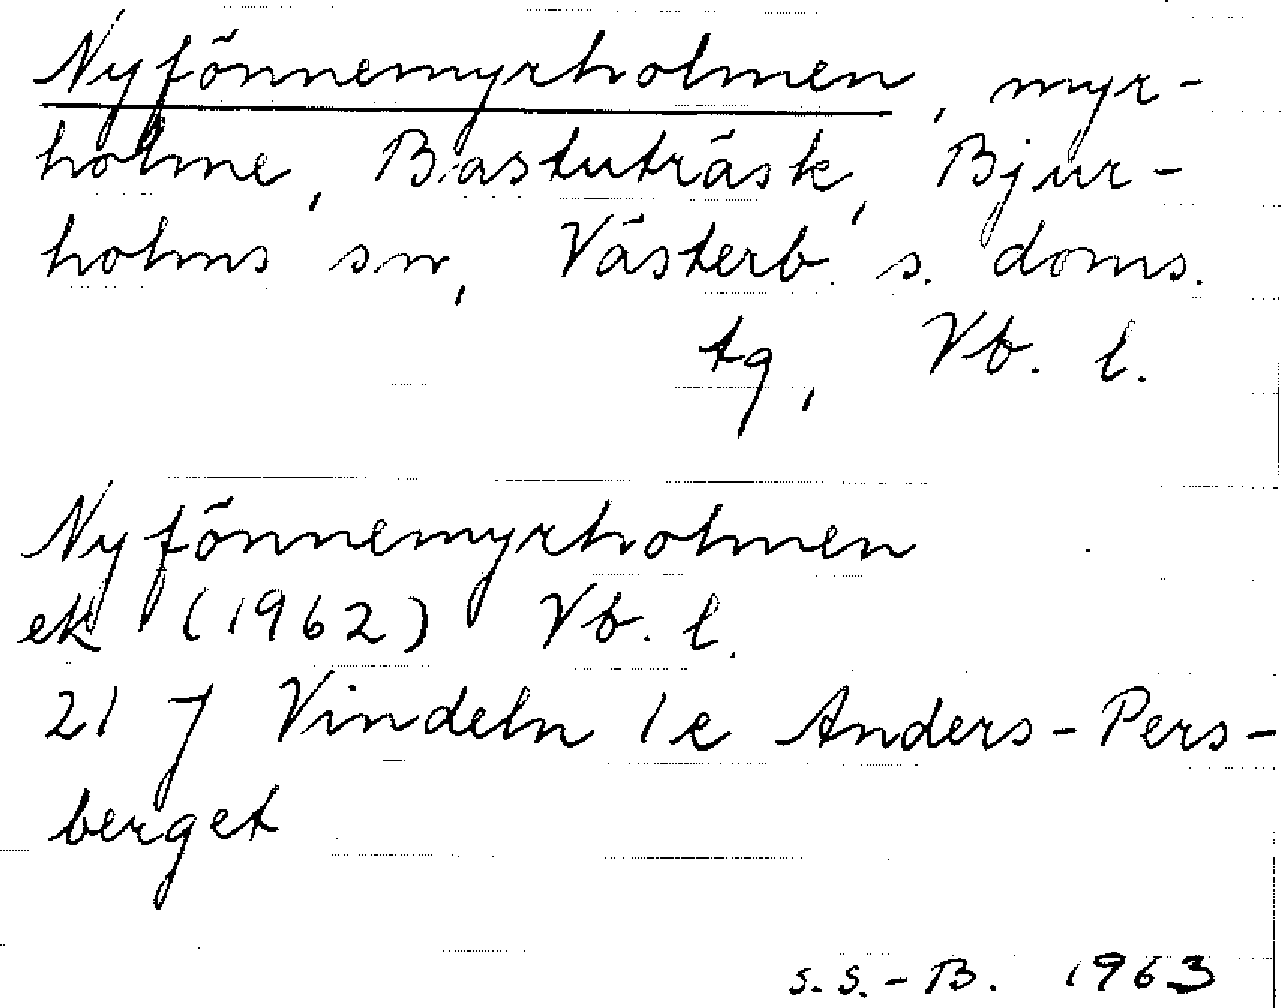 Nyfönnemyrholmen, myr-
holme, Bastuträsk, Bjur-
holms sn, Västerb. s. doms.
tg, Vb. l.
Nyfönnemyrholmen
ek (1962) Vb. l.
21 J Vindeln 1e Anders-Pers-
berget
S.S.-B. 1963